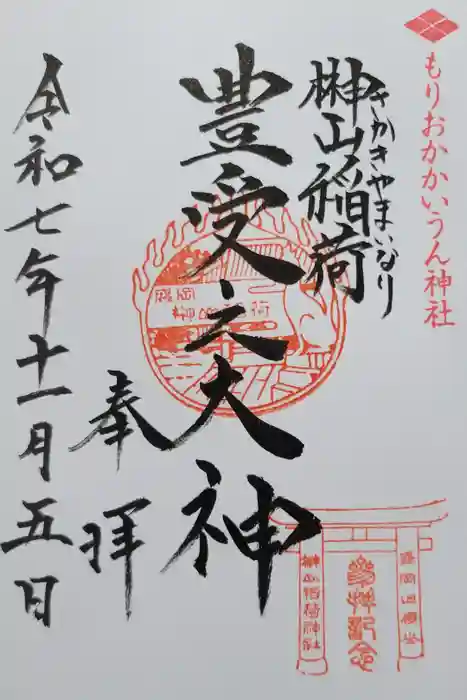 もりおかかいうん神社
さかきやまいなり
榊山稲荷
豊受之大神
奉拝
令和七年十一月五日
盛岡
榊山稲荷
榊山稲荷神社
参拝記念